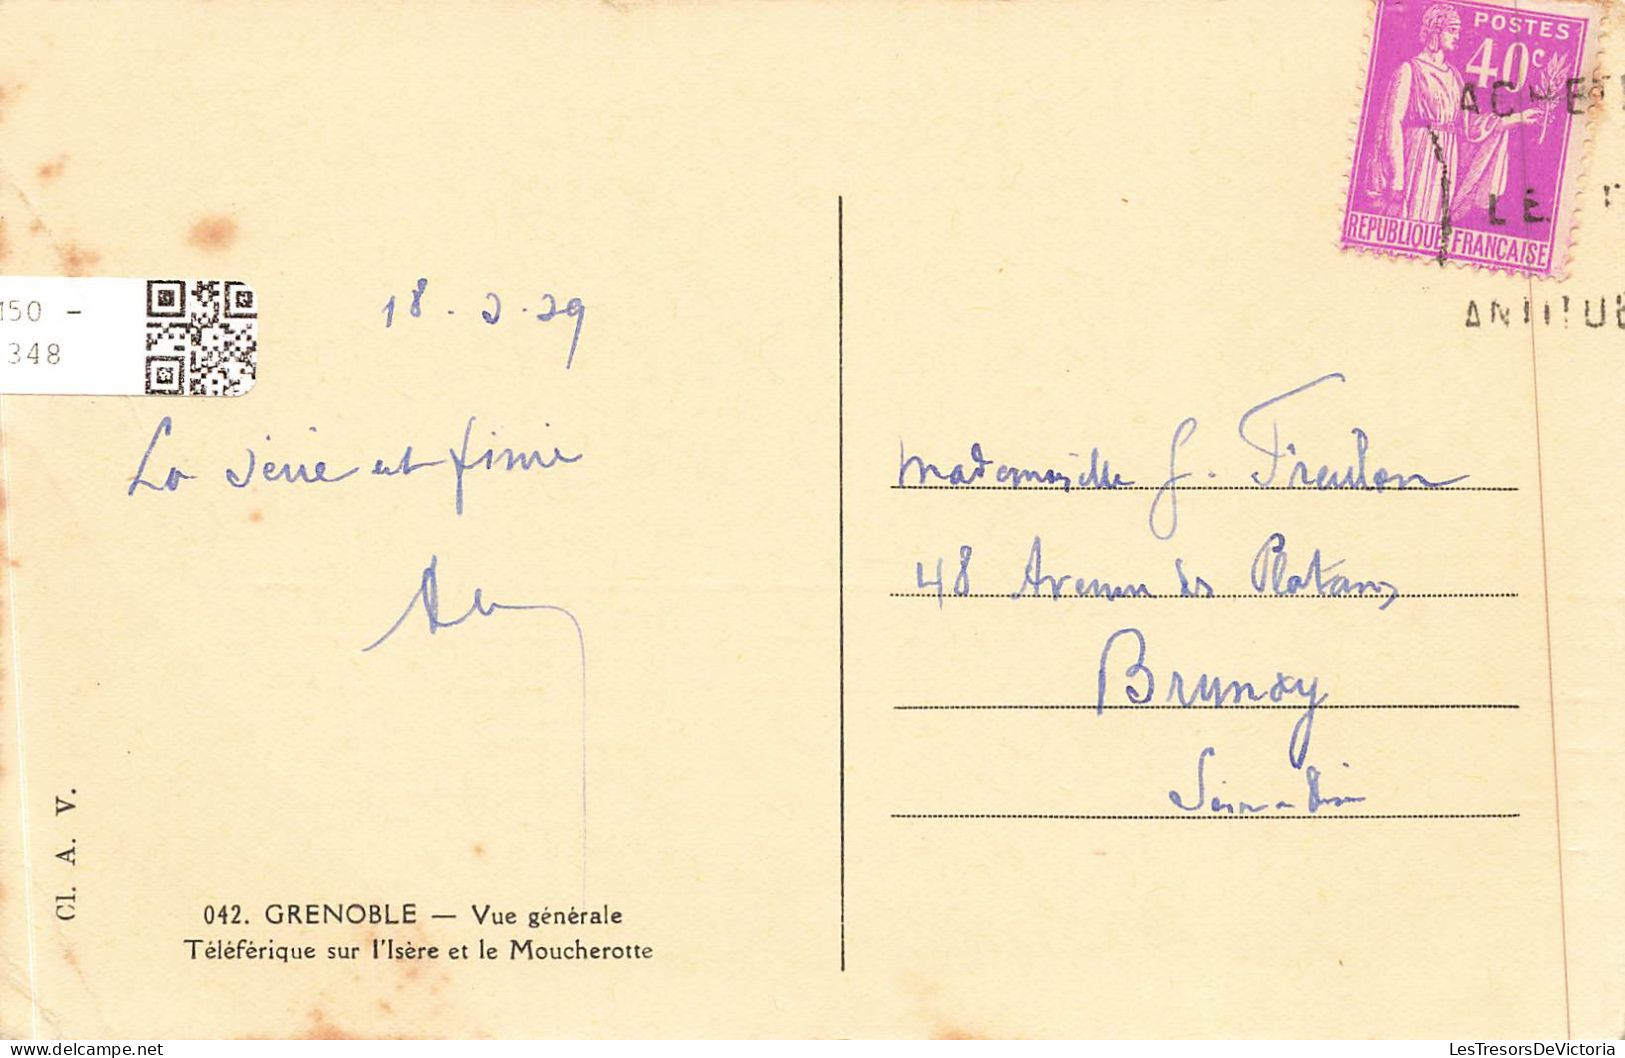 POSTES
40c
REPUBLIQUE FRANCAISE
ACHETE
LE
150 -
348
18. 2. 39
La série est finie
Mademoiselle G. Treulon
48 Avenue des Platanes
Brunoy
Seine-et-Oise
Cl. A. V.
042. GRENOBLE — Vue générale
Téléférique sur l'Isère et le Moucherotte
LesTresorsDeVictoria
www.delcampe.net